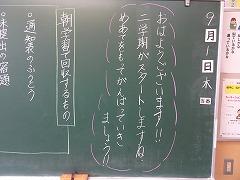 9月1日木
おはようございます!!
二学期がスタートしますね。
めあてをもってがんばっていき
ましょう!!
朝学習で回収するもの
・通知表のふくろ
・未提出の宿題